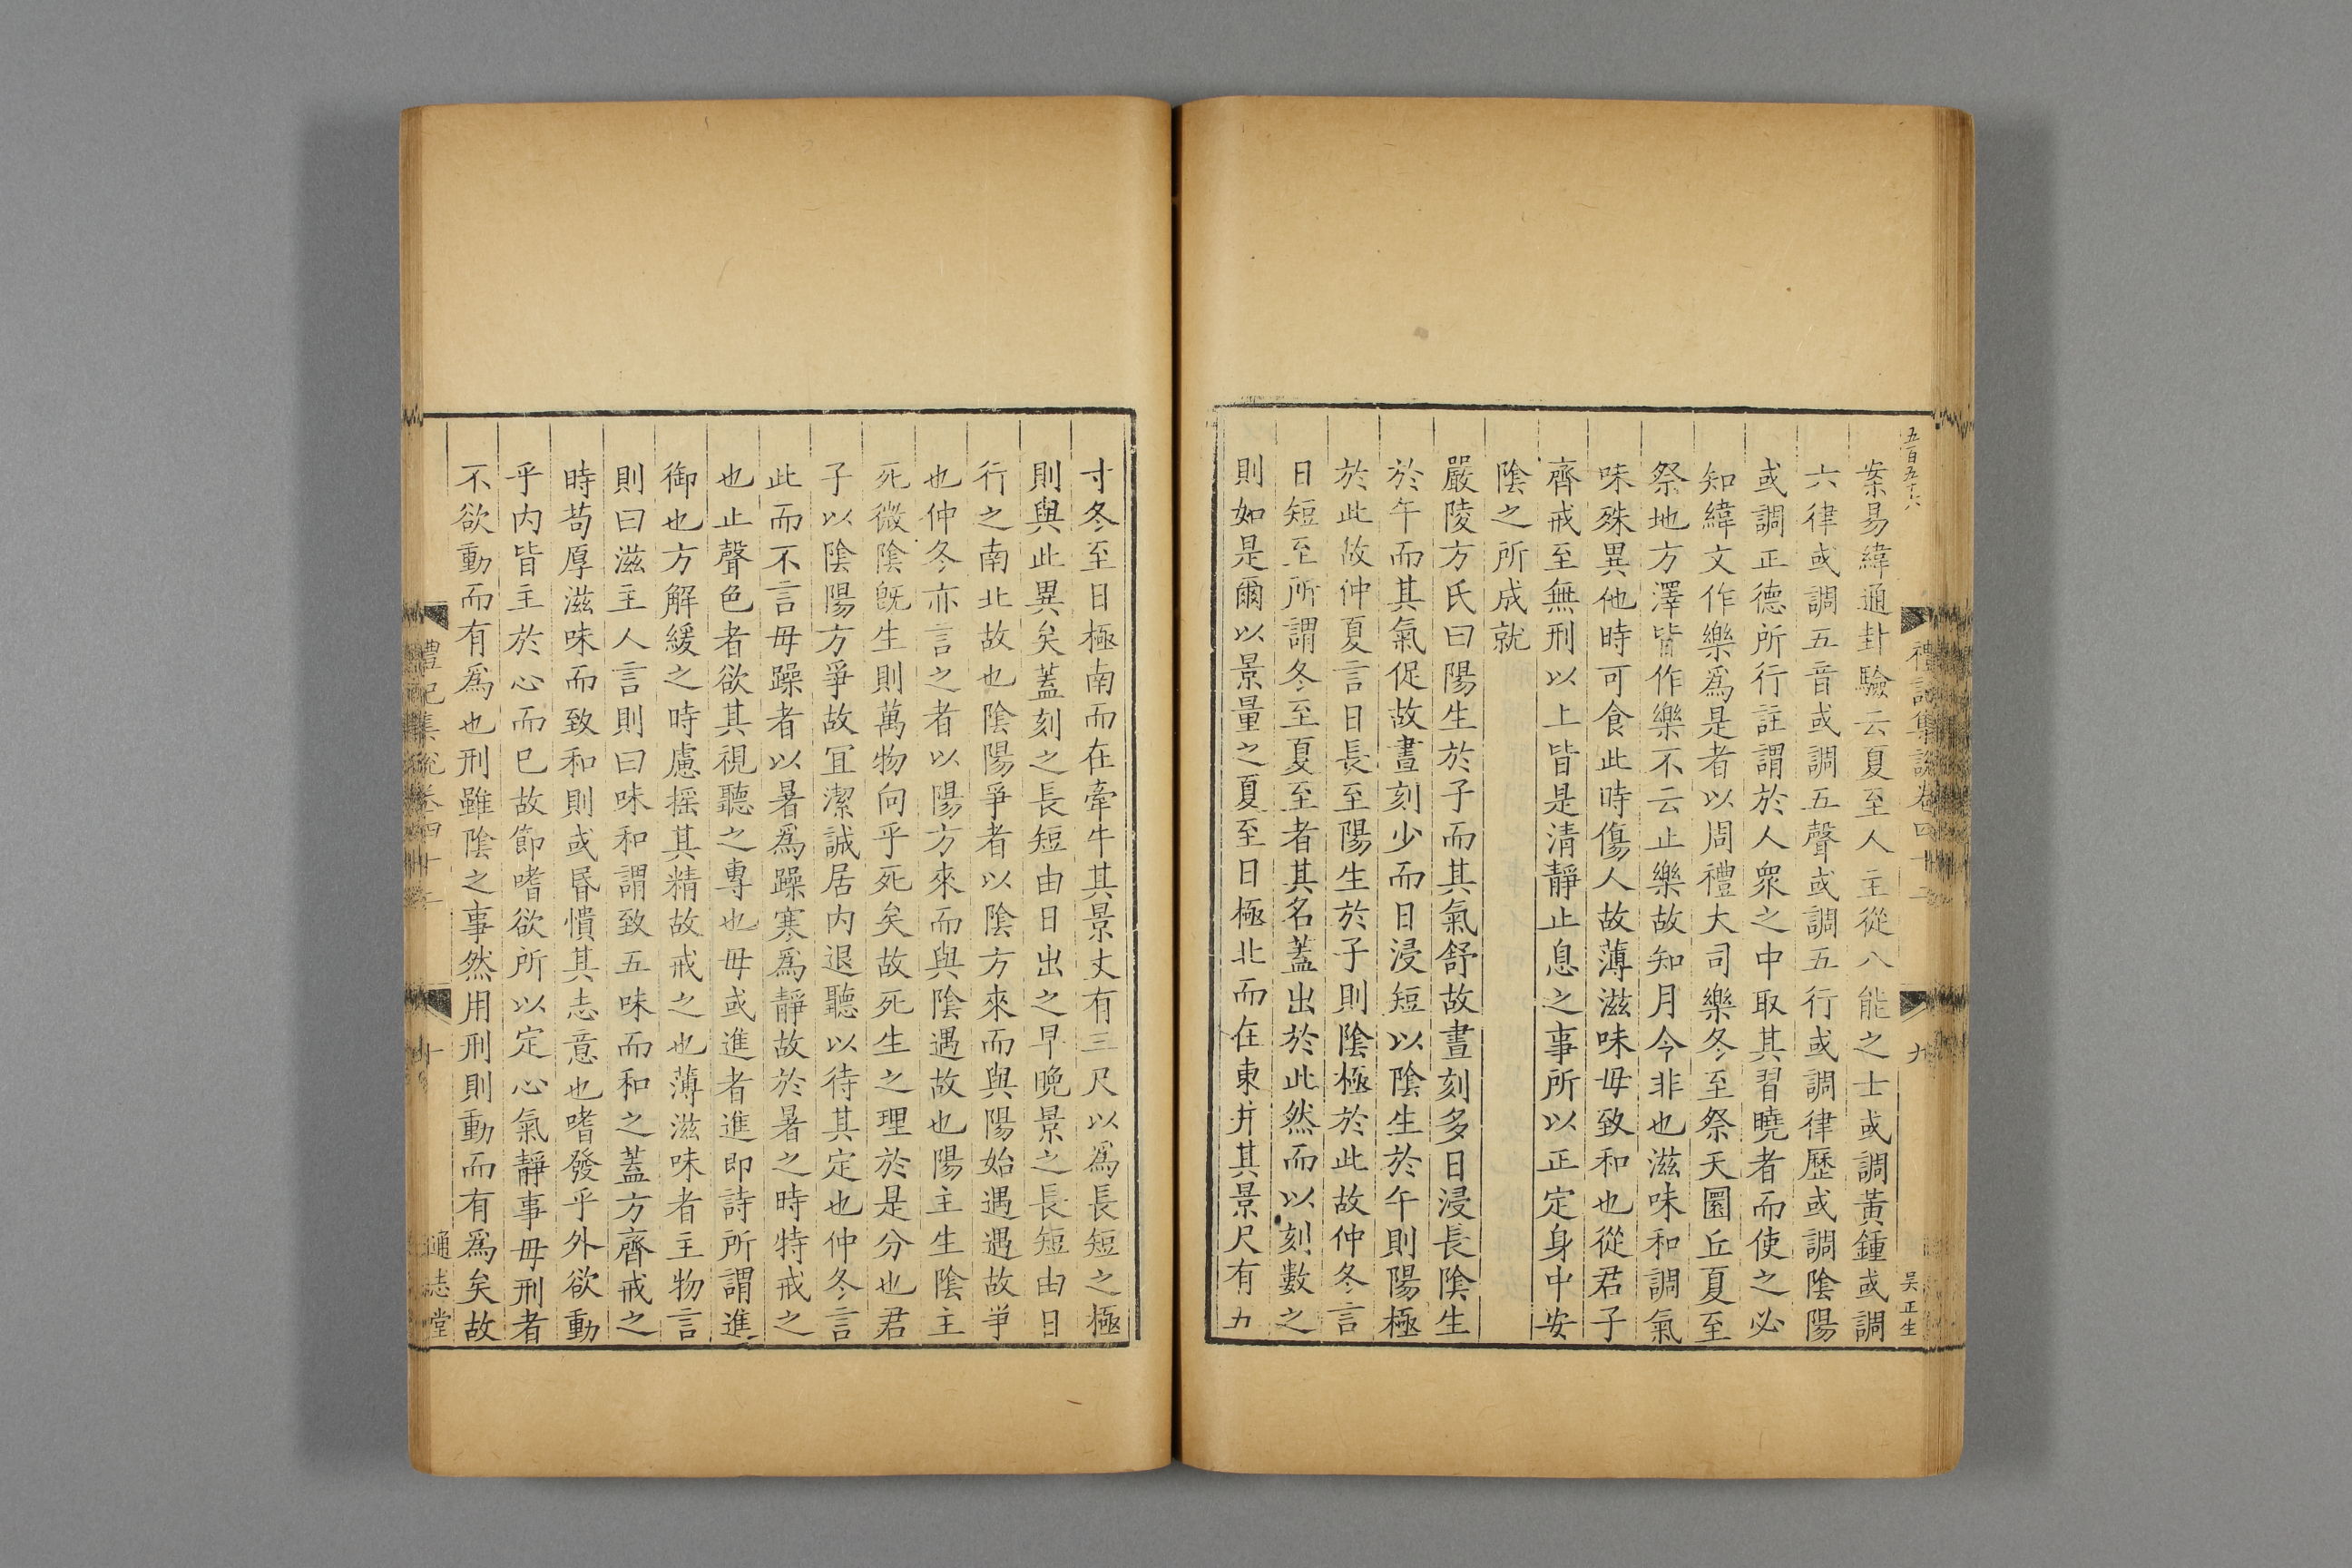 五百五十六
禮記集說卷四十二
九
吴正生
案易緯通卦驗云夏至人主從八能之士或調黃鍾或調
六律或調五音或調五聲或調五行或調律歷或調陰陽
或調正德所行註謂於人衆之中取其習曉者而使之必
知緯文作樂爲是者以周禮大司樂冬至祭天圜丘夏至
祭地方澤皆作樂不云止樂故知月令非也滋味和調氣
味殊異他時可食此時傷人故薄滋味毋致和也從君子
齊戒至無刑以上皆是清靜止息之事所以正定身中安
陰之所成就
嚴陵方氏曰陽生於子而其氣舒故晝刻多日浸長陰生
於午而其氣促故晝刻少而日浸短以陰生於午則陽極
於此故仲夏言日長至陽生於子則陰極於此故仲冬言
日短至所謂冬至夏至者其名蓋出於此然而以刻數之
則如是爾以景量之夏至日極北而在東井其景尺有九
寸冬至日極南而在牽牛其景丈有三尺以爲長短之極
則與此異矣蓋刻之長短由日出之早晚景之長短由日
行之南北故也陰陽爭者以陰方來而與陽始遇遇故爭
也仲冬亦言之者以陽方來而與陰遇故也陽主生陰主
死微陰旣生則萬物向乎死矣故死生之理於是分也君
子以陰陽方爭故宜潔誠居内退聽以待其定也仲冬言
此而不言毋躁者以暑爲躁寒爲靜故於暑之時特戒之
也止聲色者欲其視聽之專也毋或進者進即詩所謂進
御也方解緩之時慮搖其精故戒之也薄滋味者主物言
則曰滋主人言則曰味和謂致五味而和之蓋方齊戒之
時苟厚滋味而致和則或昬憒其志意也嗜發乎外欲動
乎内皆主於心而巳故節嗜欲所以定心氣靜事毋刑者
不欲動而有爲也刑雖陰之事然用刑則動而有爲矣故
禮記集說卷四十二
十
通志堂